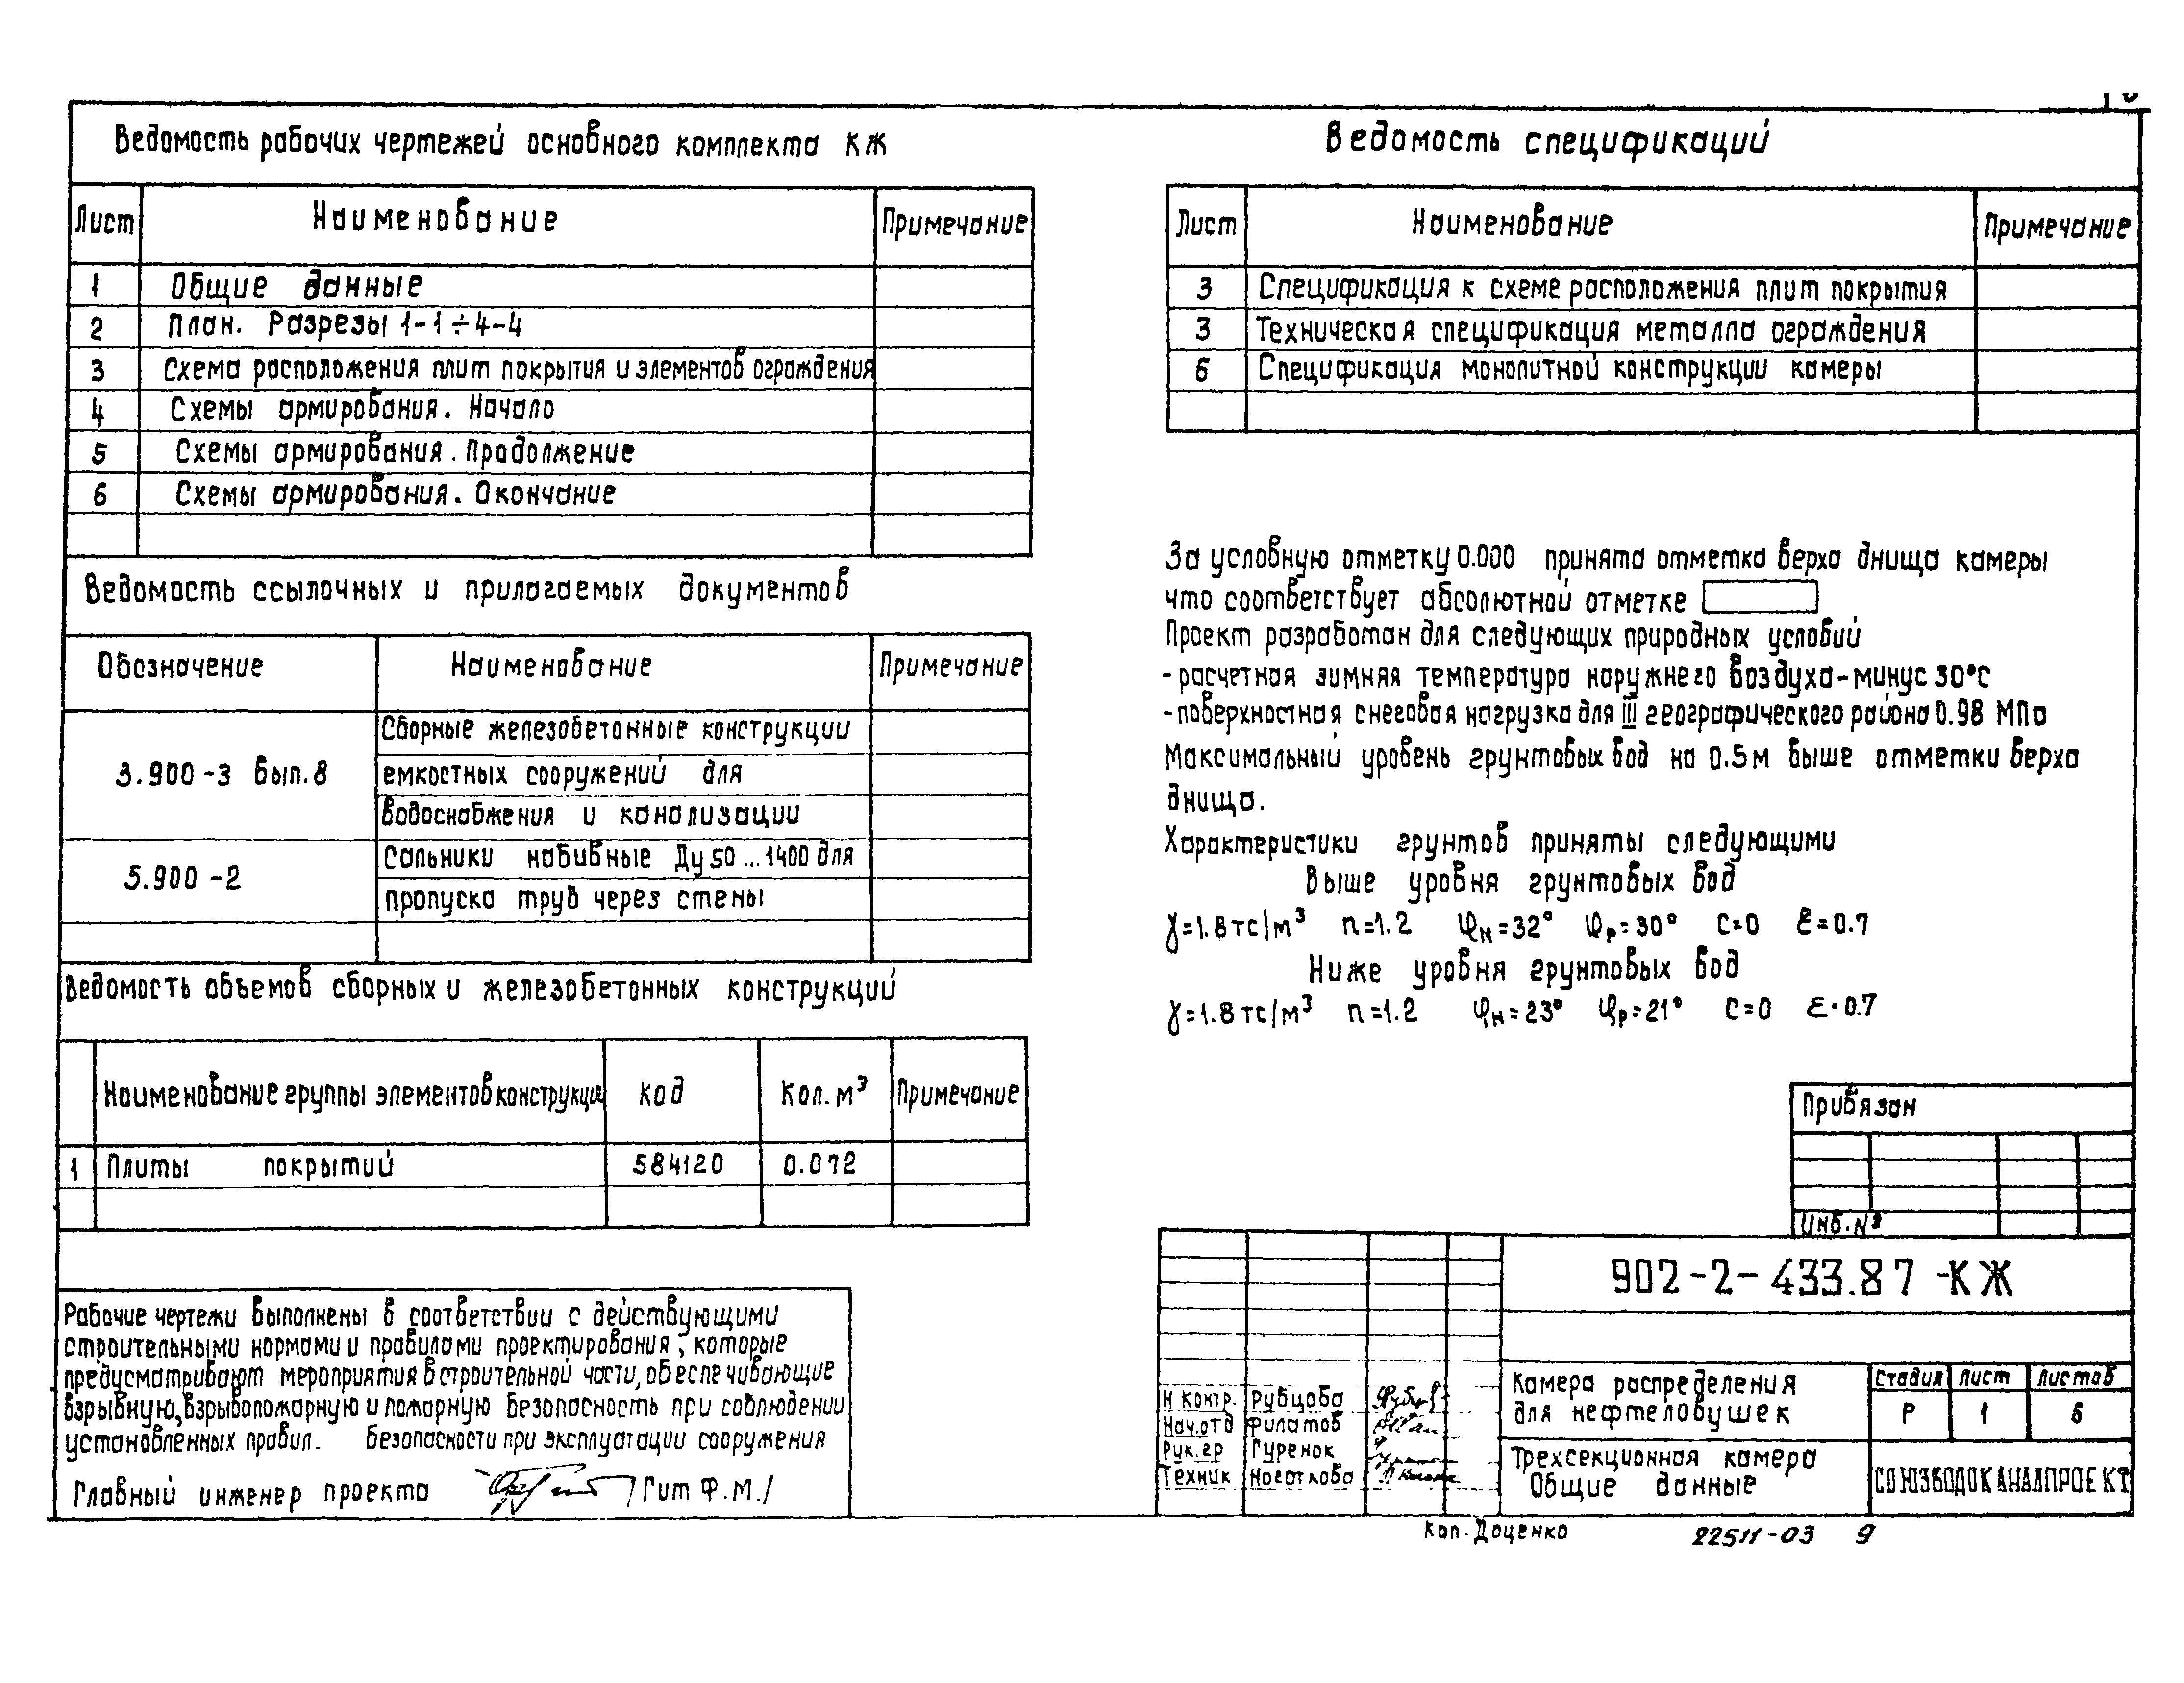 Ведомость рабочих чертежей основного комплекта КЖ
Лист Наименование Примечание
1 Общие данные
2 План. Разрезы 1-1÷4-4
3 Схема расположения плит покрытия и элементов ограждения
4 Схемы армирования. Начало
5 Схемы армирования. Продолжение
6 Схемы армирования. Окончание
Ведомость ссылочных и прилагаемых документов
Обозначение Наименование Примечание
3.900-3 вып.8 Сборные железобетонные конструкции
емкостных сооружений для
водоснабжения и канализации
5.900-2 Сальники набивные Ду 50...1400 для
пропуска труб через стены
Ведомость объемов сборных и железобетонных конструкций
Наименование группы элементов конструкции Код Кол. м³ Примечание
1 Плиты покрытий 584120 0.072
Рабочие чертежи выполнены в соответствии с действующими
строительными нормами и правилами проектирования, которые
предусматривают мероприятия в строительной части, обеспечивающие
взрывную, взрывопожарную и пожарную безопасность при соблюдении
установленных правил. безопасности при эксплуатации сооружения
Главный инженер проекта /Гит Ф.М./
Ведомость спецификаций
Лист Наименование Примечание
3 Спецификация к схеме расположения плит покрытия
3 Техническая спецификация металла ограждения
6 Спецификация монолитной конструкции камеры
За условную отметку 0.000 принята отметка верха днища камеры
что соответствует абсолютной отметке
Проект разработан для следующих природных условий
- расчетная зимняя температура наружнего воздуха - минус 30°С
- поверхностная снеговая нагрузка для III географического района 0.98 МПа
Максимальный уровень грунтовых вод на 0.5м выше отметки верха
днища.
Характеристики грунтов приняты следующими
Выше уровня грунтовых вод
γ=1.8тс/м³ n=1.2 φн=32° φр=30° С=0 Ɛ=0.7
Ниже уровня грунтовых вод
γ=1.8тс/м³ n=1.2 φн=23° φр=21° С=0 Ɛ=0.7
Привязан
Инв.№
902-2-433.87-КЖ
Камера распределения
для нефтеловушек
Стадия Лист Листов
Р 1 6
Н контр. Рубцова
Нач.отд Филатов
Рук.гр Гуренок
Техник Ноготкова
Трехсекционная камера
Общие данные
СОЮЗВОДОКАНАЛПРОЕКТ
Коп. Доценко 22511-03 9